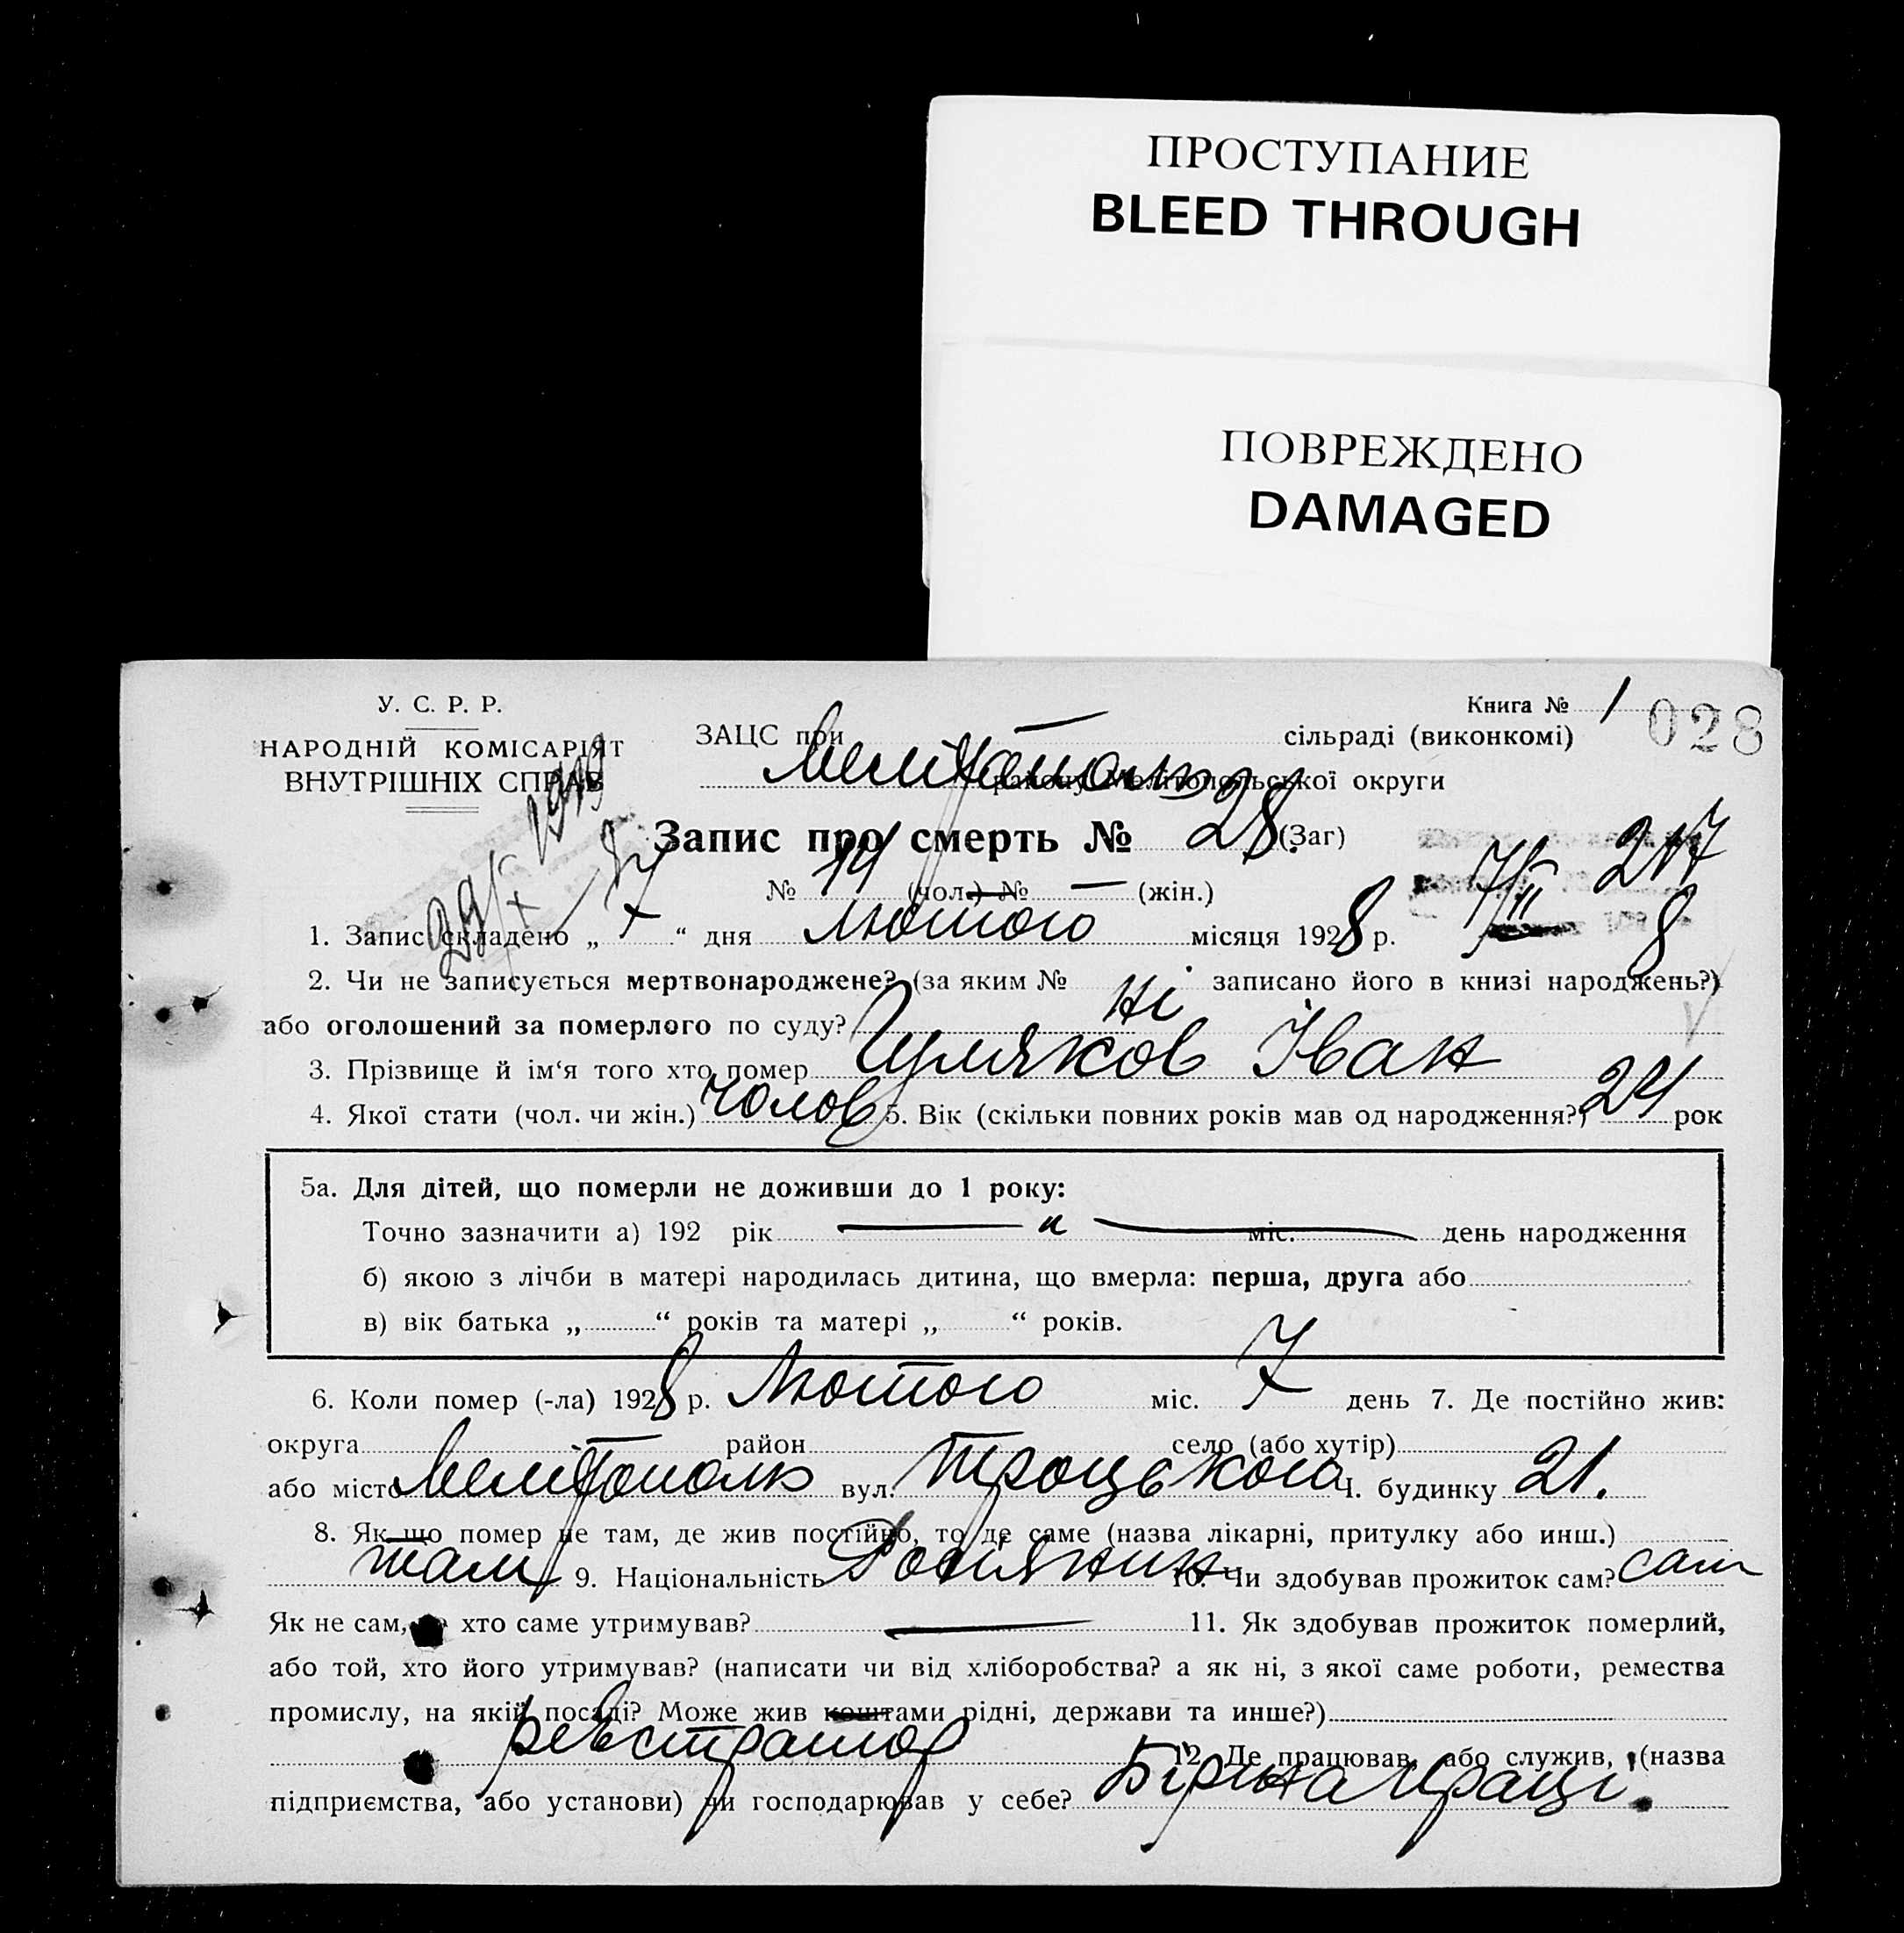 ПРОСТУПАНИЕ
BLEED THROUGH
ПОВРЕЖДЕНО
DAMAGED
У. С. Р. Р.
НАРОДНІЙ КОМІСАРІЯТ
ВНУТРІШНІХ СПРАВ
Книга № 1
028
ЗАЦС при — сільраді (виконкомі)
Мелітополь району Мелітопольської округи
Запис про смерть № 28. (Заг)
№ 14 (чол.) № — (жін.)
7/II 217
8
1. Запис складено „ 7 “ дня лютого місяця 1928 р.
2. Чи не записується мертвонароджене? (за яким № записано його в книзі народжень?)
або оголошений за померлого по суду? ні
3. Прізвище й ім‘я того хто помер Іван
4. Якої стати (чол. чи жін.) чолов 5. Вік (скільки повних років мав од народження?) 24 рок
5а. Для дітей, що померли не доживши до 1 року:
Точно зазначити а) 192 рік — " — міс. день народження
б) якою з лічби в матері народилась дитина, що вмерла: перша, друга або
в) вік батька „ “ років та матері „ “ років.
6. Коли помер (-ла) 1928 р. Лютого міс. 7 день 7. Де постійно жив:
округа — район село (або хутір)
або місто Мелітополь вул. Троцького Ч. будинку 21.
8. Як що помер не там, де жив постійно, то де саме (назва лікарні, притулку або инш.)
там 9. Національність Росіянин 10. Чи здобував прожиток сам? сам
Як не сам, хто саме утримував? — 11. Як здобував прожиток померлий,
або той, хто його утримував? (написати чи від хліборобства? а як ні, з якої саме роботи, ремества
промислу, на якій посаді? Може жив коштами рідні, держави та инше?)
реєстратор 12. Де працював, або служив, (назва
підприємства, або установи) чи господарював у себе? Біржа праці.